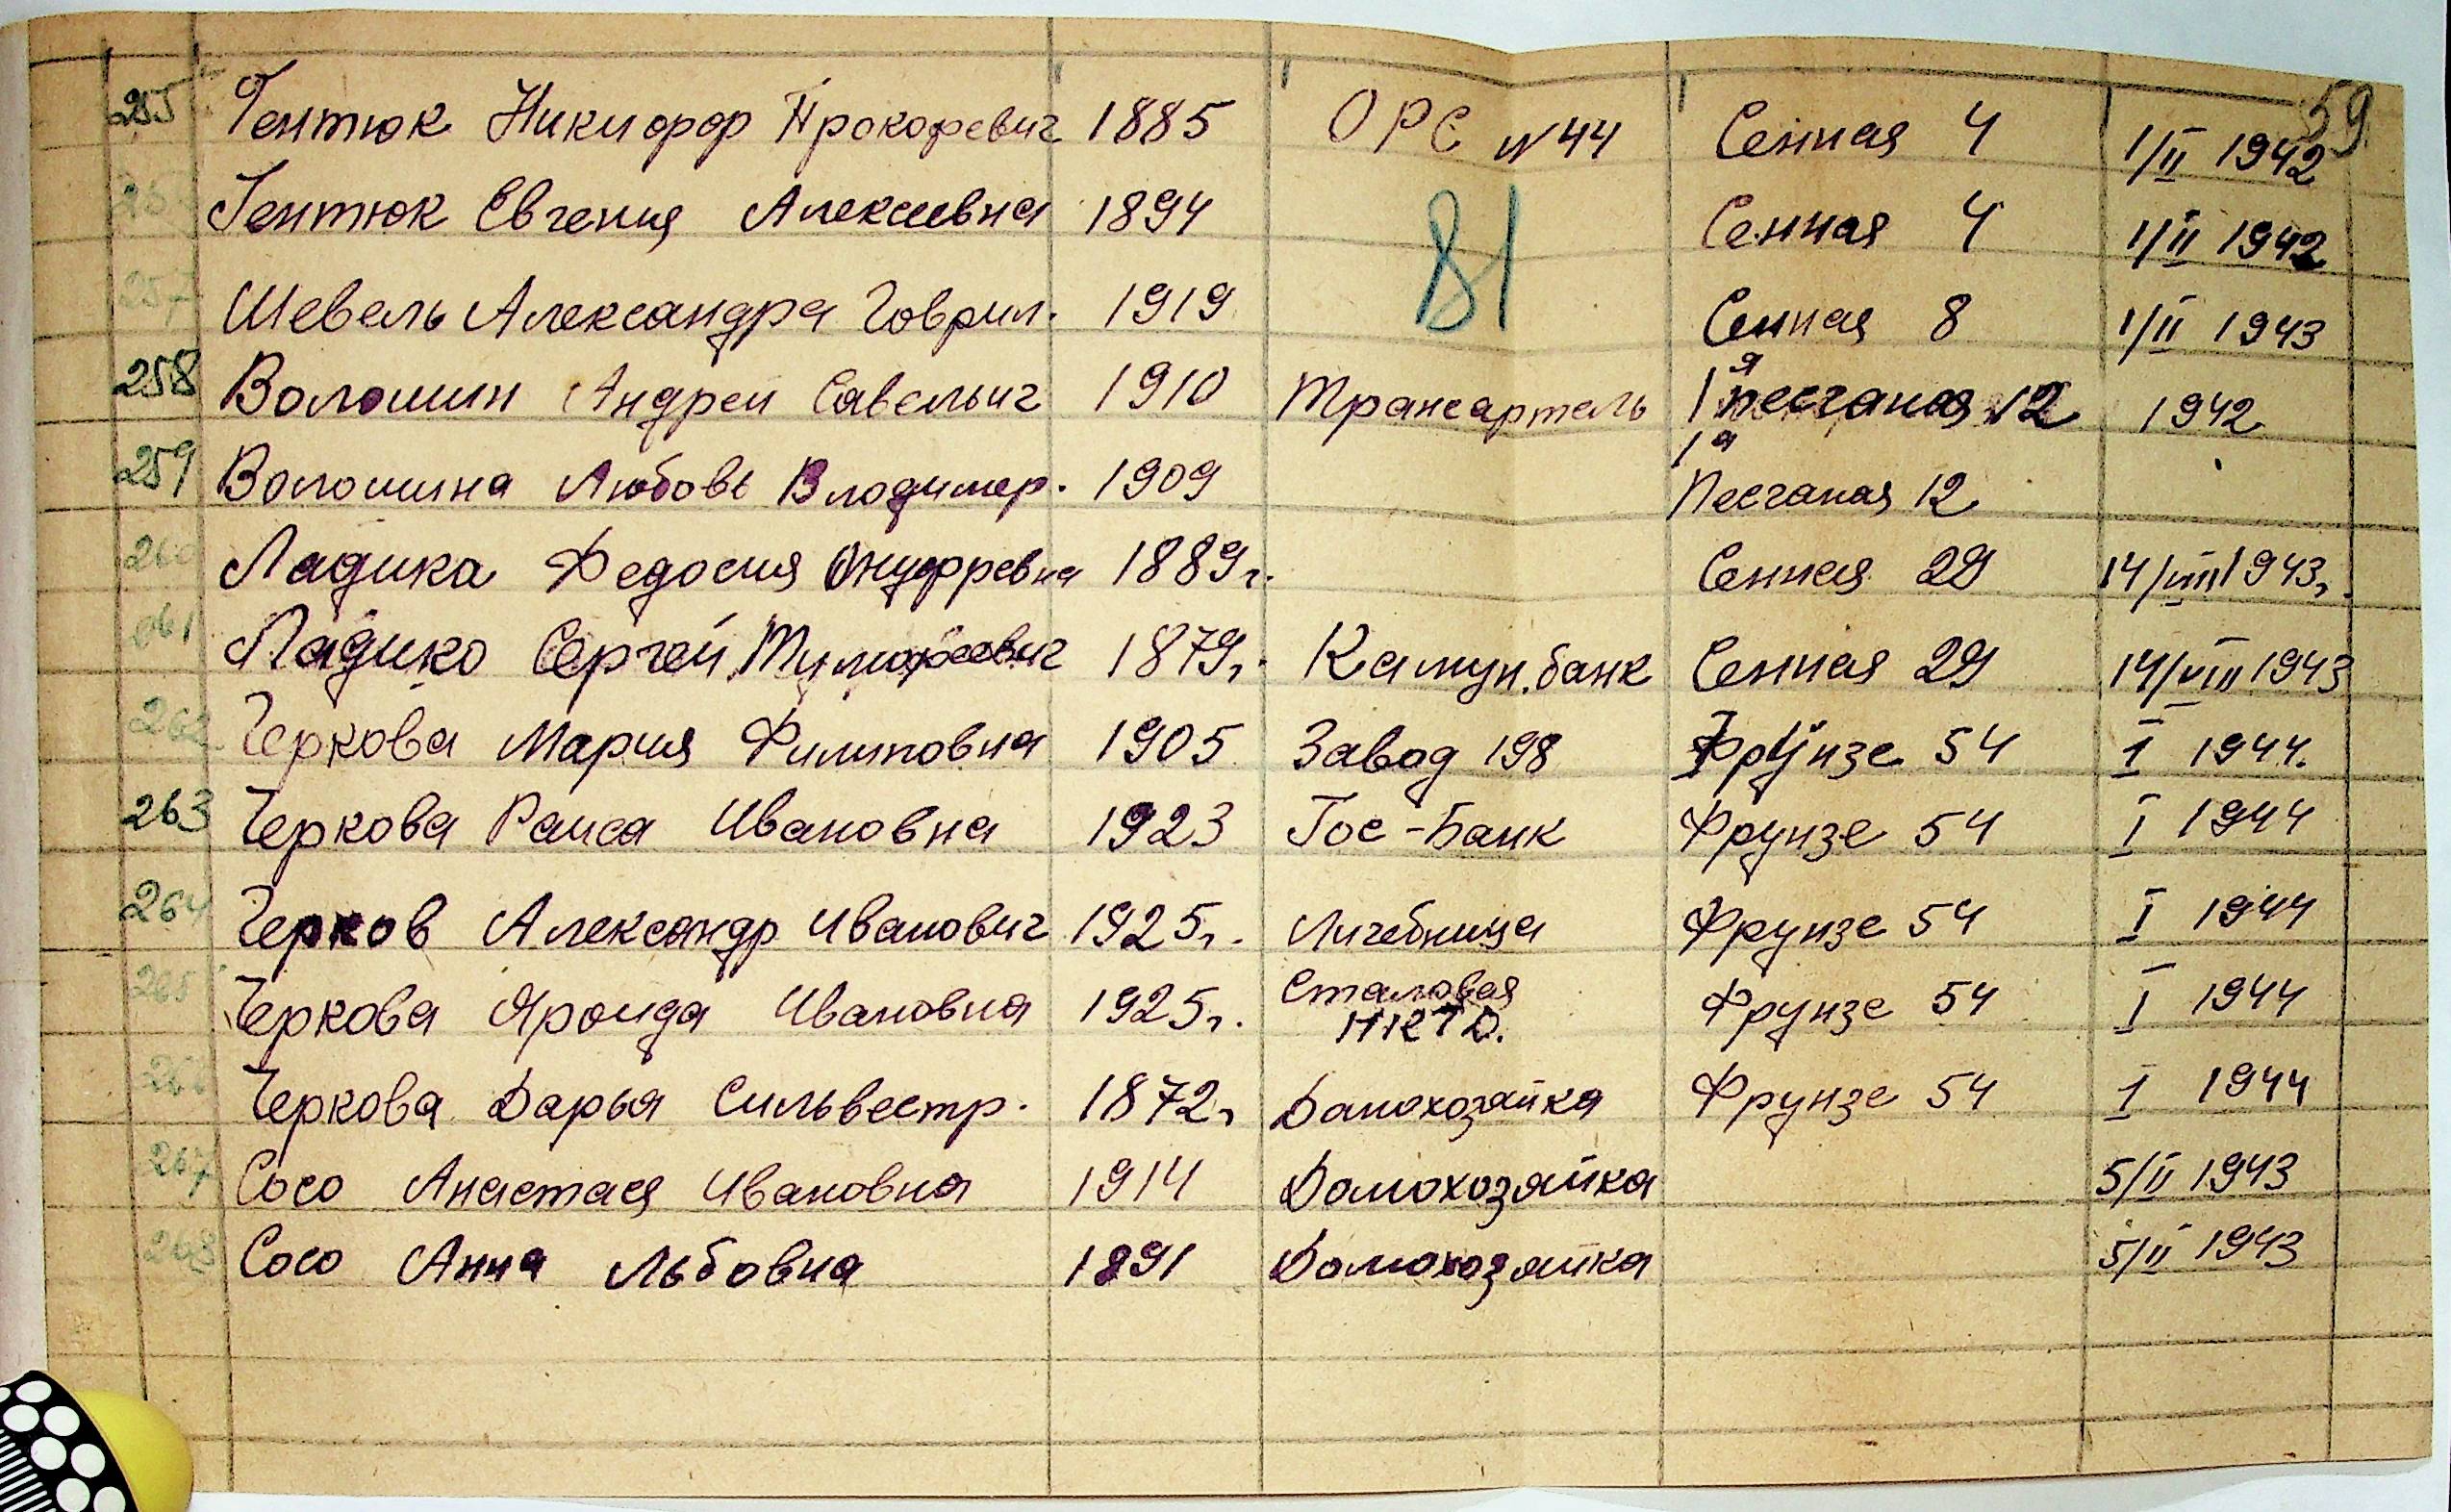 59
255 Гентюк Никифор Прокофевич 1885 ОРС №44 Сенная 4 1/II 1942
Гентюк Евгения Алексеевна 1894 Сенная 4 1/II 1942
81
257 Шевель Александра Гаврил. 1919 Сенная 8 1/II 1943
258 Волошин Андреи Савельич 1910 Трансартель 1я песчаная 12 1942
259 Волошина Любовь Владимер. 1909 1я Песчаная 12
260 Ладика Федосия Онуфревна 1889г. Сенная 29 14/VIII 1943г.
261 Ладико Сергей Тимофеевич 1879г. Камун.банк Сенная 29 14/VIII 1943
262 Черкова Мария Филиповна 1905 Завод 198 Фрунзе 54 I 1944.
263 Черкова Раиса Ивановна 1923 Гос-Банк Фрунзе 54 I 1944
264 Черков Александр Иванович 1925г. Личебница Фрунзе 54 I 1944
265 Черкова Ивановна 1925г. Сталовая Фрунзе 54 I 1944
266 Черкова Дарья Сильвестр. 1872г Дамохозайка Фрунзе 54 I 1944
267 Сосо Анастася Ивановна 1914 Домохозяйка 5/II 1943
268 Сосо Анна Льбовна 1891 Домохозяйка 5/II 1943